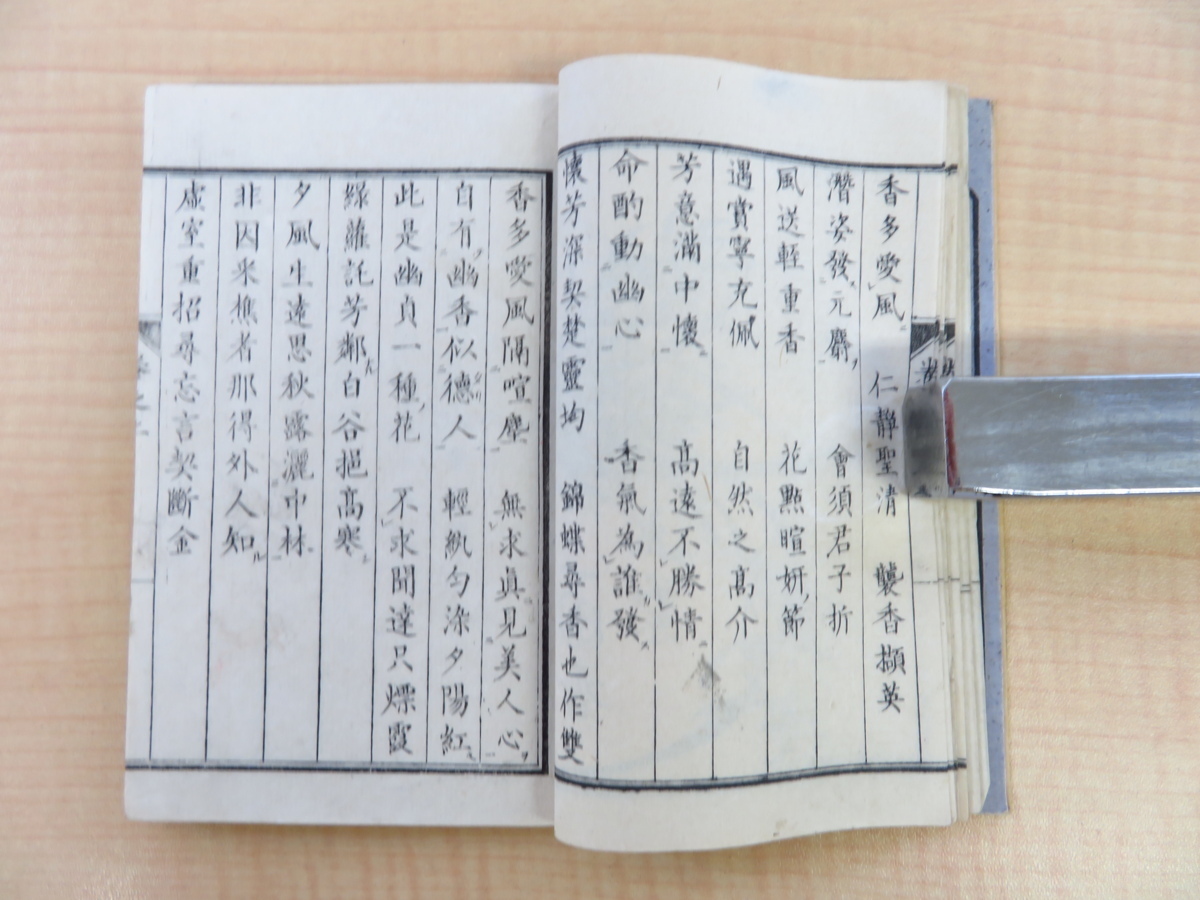 香多愛風 仁靜聖清 襲香擷英
潛姿發元麝 會須君子折
風送輕重香 花點暄妍節
遇賞寧充佩 自然之高介
芳意滿中懷 高遠不勝情
命酌動幽心 香氣為誰發
懷芳深契楚靈均 錦蝶尋香也作雙
香多愛風隔喧塵 無求真見美人心
自有幽香似德人 輕紈勻染夕陽紅
此是幽貞一種花 不求聞達只煙霞
綠蘿託芳鄰 白谷挹高寒
夕風生遠思 秋露灑中林
非因采樵者 那得外人知
虛室重招尋 忘言契斷金